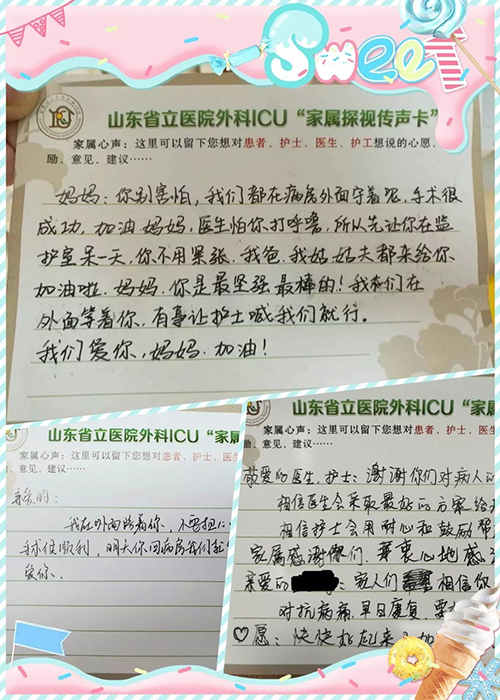 Sweet
山东省立医院外科ICU “家属探视传声卡”
家属心声：这里可以留下您想对患者、护士、医生、护工想说的心愿、
励、意见、建议……
妈妈：你别害怕，我们都在病房外面守着呢，手术很
成功，加油妈妈，医生怕你打呼噜，所以先让你在监
护室呆一天，你不用紧张，我爸，我姑，姑夫都来给你
加油啦，妈妈，你是最坚强最棒的！我们在
外面等着你，有事让护士喊我们就行。
我们爱你，妈妈，加油！
山东省立医院外科ICU “家属
家属心声：这里可以留下您想对患者、护士、医
励、意见、建议……
亲爱的：
我在外面陪着你，不要担心
手术很顺利，明天你回病房我们
爱你。
山东省立医院外科ICU “家
家属心声：这里可以留下您想对患者、护士、
励、意见、建议……
敬爱的医生、护士：谢谢你们对病人的
相信医生会采取最好的方案给
相信护士会用耐心和鼓励帮
家属感谢你们，衷心地感
亲爱的：家人们相信你
对抗病痛，早日康复，要
愿：快快好起来，加